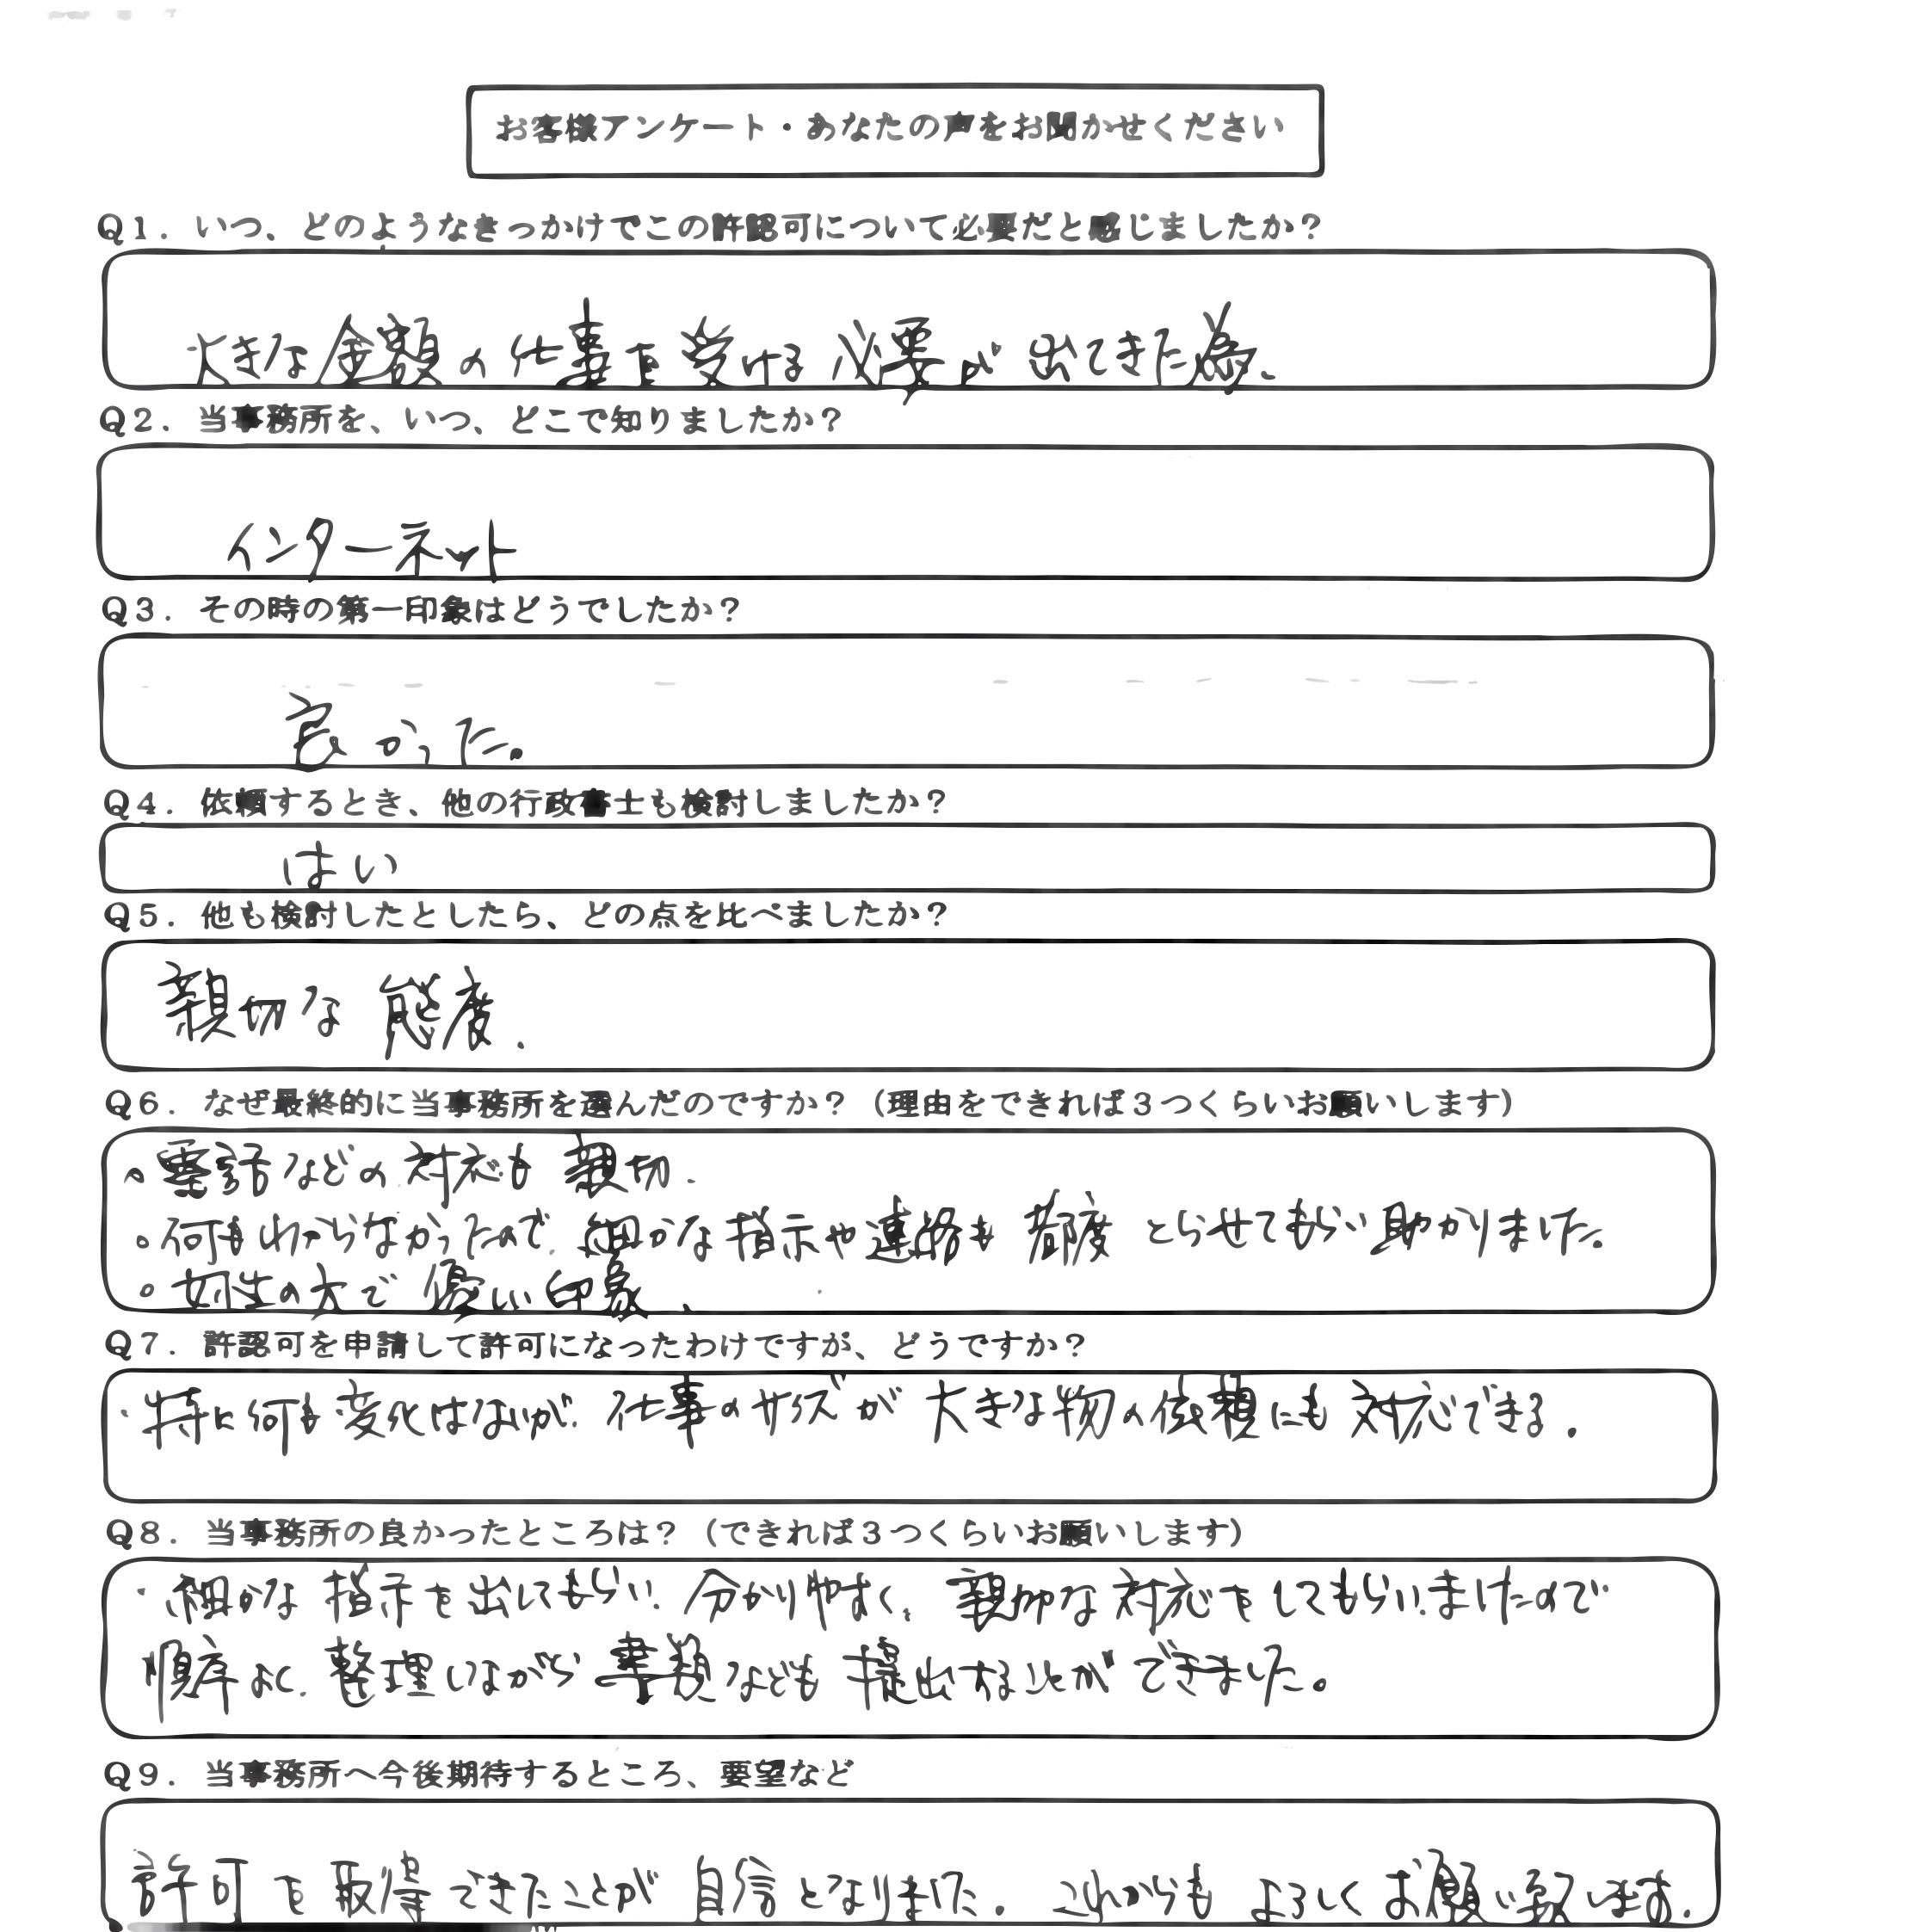 お客様アンケート・あなたの声をお聞かせください
Q1．いつ、どのようなきっかけでこの許認可について必要だと感じましたか？
大きな金額の仕事を受ける必要が出てきた為、
Q2．当事務所を、いつ、どこで知りましたか？
インターネット
Q3．その時の第一印象はどうでしたか？
良かった。
Q4．依頼するとき、他の行政書士も検討しましたか？
はい
Q5．他も検討したとしたら、どの点を比べましたか？
親切な態度.
Q6．なぜ最終的に当事務所を選んだのですか？（理由をできれば３つくらいお願いします）
。電話などの対応も親切.
。何もわからなかったので、細かな指示や連絡も都度とらせてもらい助かりました.
。女性の方で優しい印象、
Q7．許認可を申請して許可になったわけですが、どうですか？
・特に何も変化はないが、仕事のサイズが大きな物の依頼にも対応できる.
Q8．当事務所の良かったところは？（できれば３つくらいお願いします）
・細かな指示を出してもらい、分かりやすく、親切な対応をしてもらいましたので
順序よく、整理しながら書類なども提出することができました。
Q9．当事務所へ今後期待するところ、要望など
許可を取得できたことが自信となりました. これからもよろしくお願い致します.